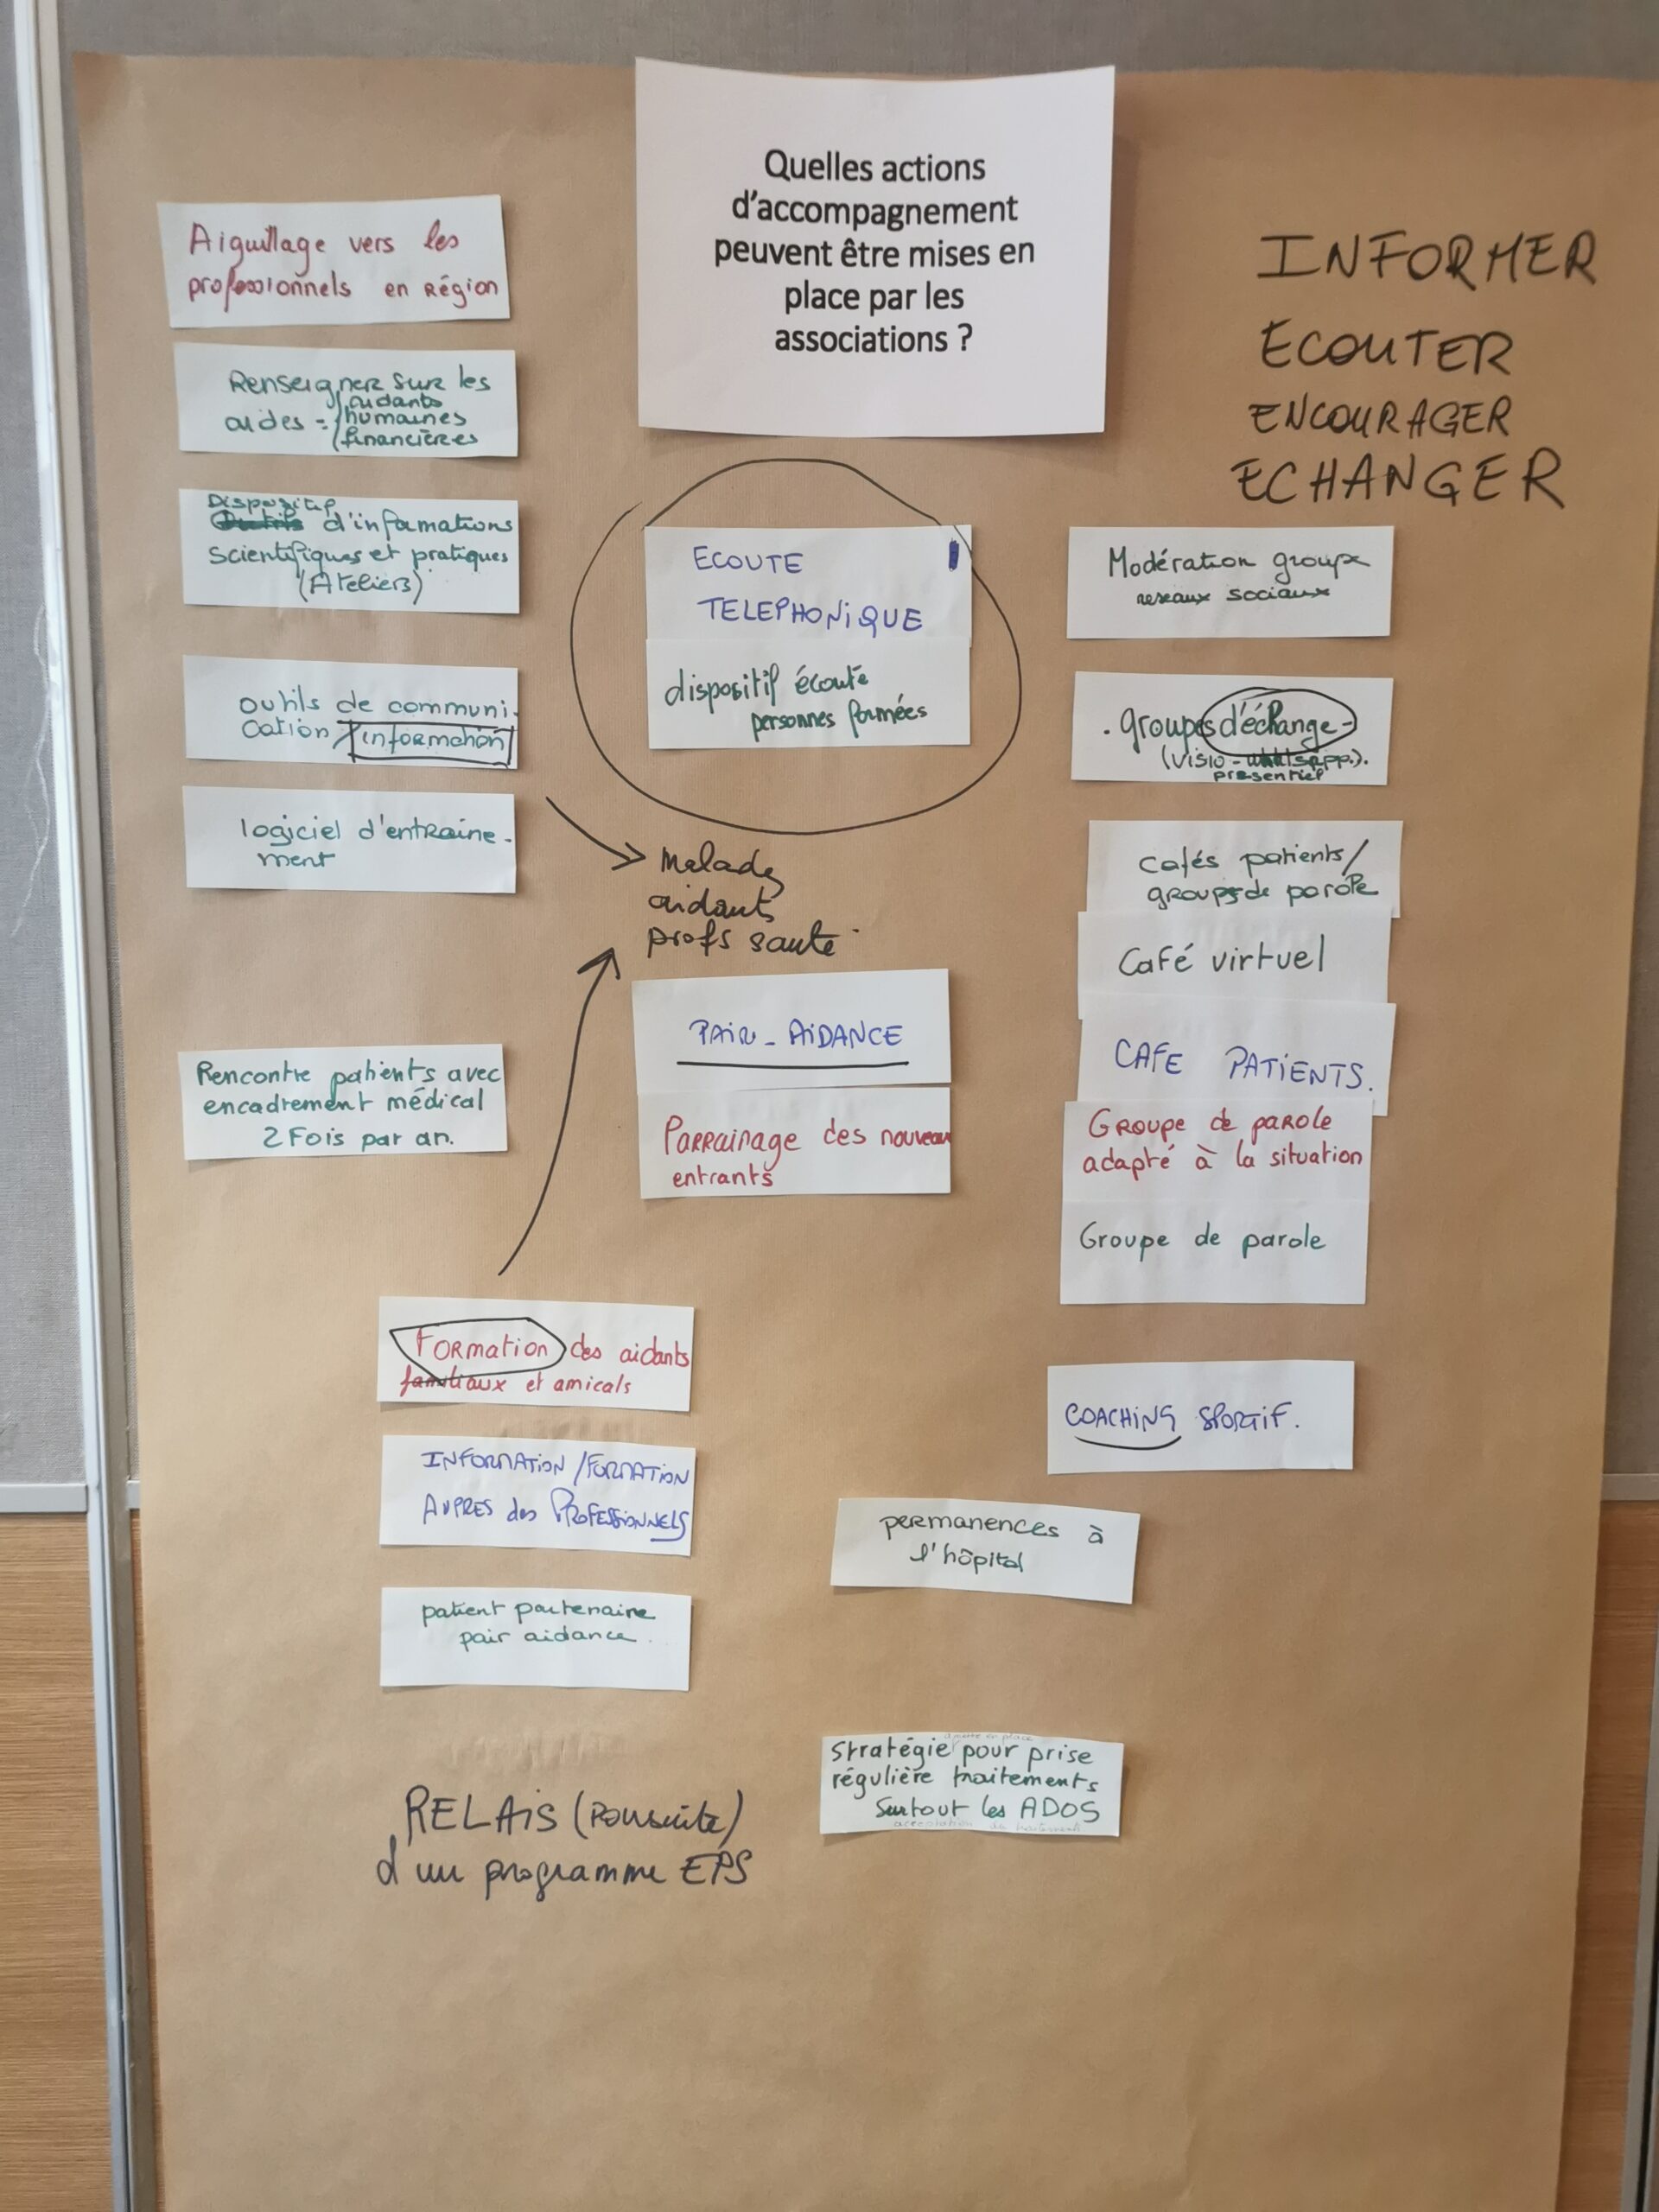 Quelles actions
d'accompagnement
peuvent être mises en
place par les
associations ?
INFORMER
ECOUTER
ENCOURAGER
ECHANGER
Aiguillage vers les
professionnels en Région
Renseigner sur les
aides = aidants
humaines
financières
Dispositif
d'informations
scientifiques et pratiques
(Ateliers)
outils de communi-
cation / information
logiciel d'entraine-
ment
Rencontre patients avec
encadrement médical
2 Fois par an.
ECOUTE
TELEPHONiQUE
dispositif écoute
personnes formées
Malade
aidant
profs santé
PAIR-AiDANCE
Parrainage des nouveaux
entrants
Modération groupe
reseaux sociaux
. groupes d'échange-
(visio - whatsapp.).
présentiel
cafés patients/
groupes de parole
Café virtuel
CAFE PATiENTS.
Groupe de parole
adapté à la situation
Groupe de parole
COACHiNG SPORTiF.
Formation des aidants
familiaux et amicals
INFORMATiON/FORMATiON
AUPRES des PROFESSiONNELS
patient partenaire
pair aidance.
permanences à
l'hôpital
Stratégie pour prise
régulière traitements
Surtout les ADOS
RELAiS (Poursuite)
d'un programme EPS